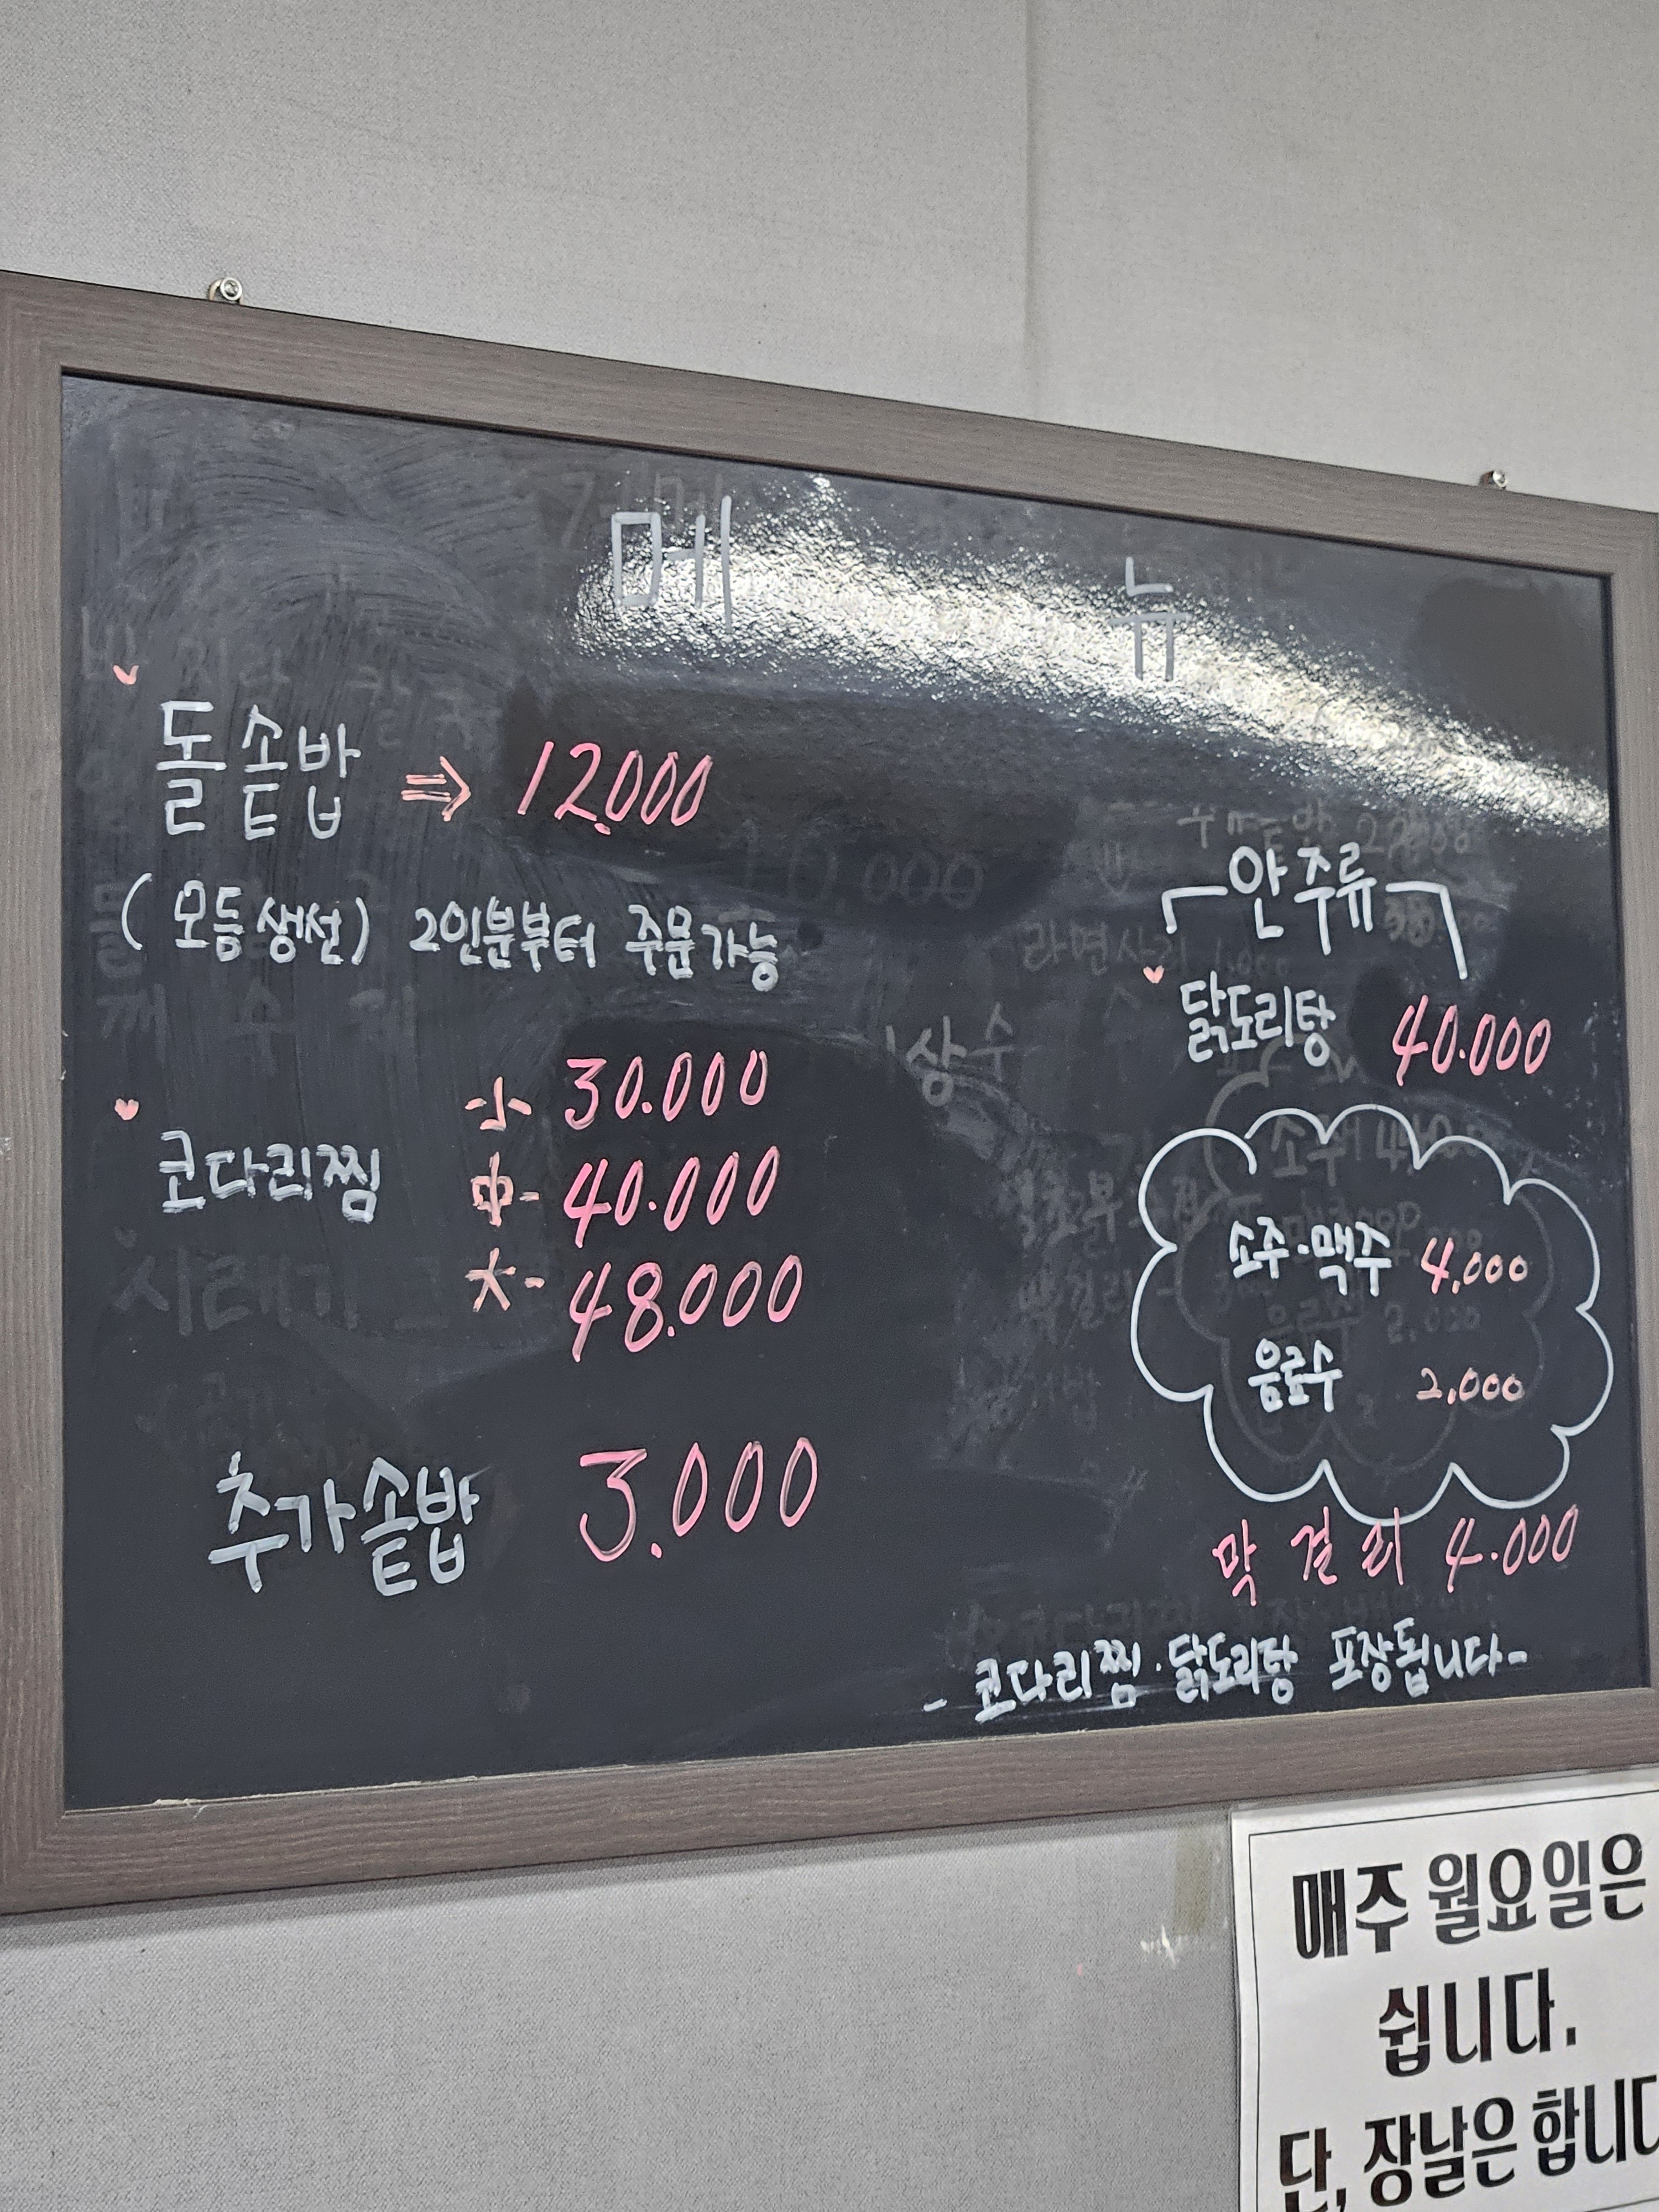 메 뉴
돌솥밥 ⇒ 12.000
(모듬생선) 2인분부터 주문가능
코다리찜
小 - 30.000
中 - 40.000
大 - 48.000
추가솥밥 3.000
안주류
닭도리탕 40.000
소주·맥주 4,000
음료수 2,000
막걸리 4.000
- 코다리찜·닭도리탕 포장됩니다 -
매주 월요일은
쉽니다.
단, 장날은 합니다